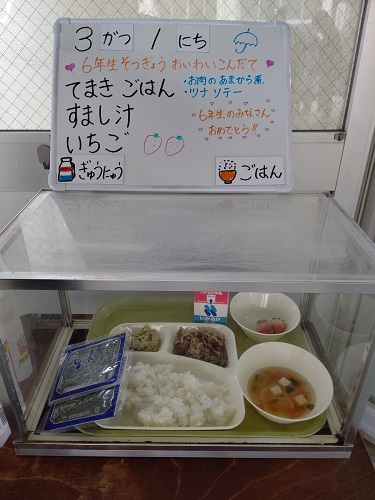 3がつ1にち
6年生そつぎょうおいわいこんだて
てまきごはん
・お肉のあまから煮、
・ツナソテー
すまし汁
いちご
6年生のみなさん
おめでとう!!
ぎゅうにゅう
ごはん